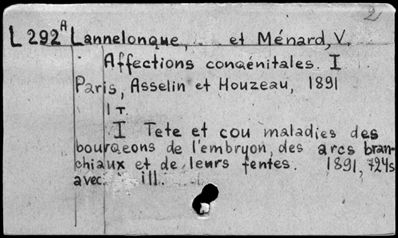 2
L 292A Lannelongue, et Ménard, V.
Affections congénitales. I
Paris, Asselin et Houzeau, 1891
1 т
I Tete et cou maladies des
bourgeons de l'embryon, des arcs bran-
chiaux et de leurs fentes. 1891, 724s
avec ill.